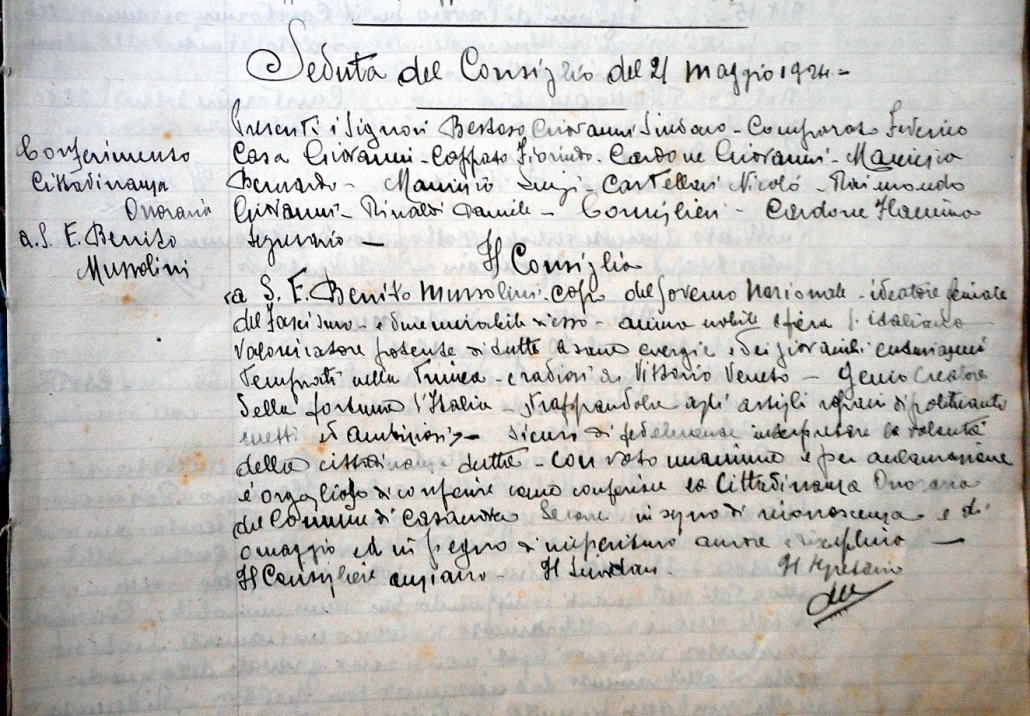 Seduta del Consiglio del 21 maggio 1924 =
Conferimento
Cittadinanza
Onoraria
a. S. E. Benito
Mussolini
Presenti i Signori Bessoso Giovanni Sindaco - Comparato Federico
Casa Giovanni - Giovanni -
Bernardo - Luigi - Castellari Nicoló - Raimondo
Giovanni - Rinaldi Daniele - Consiglieri - Cardone
segretario -
Il Consiglio
a S. E. Benito Mussolini - capo del Governo Nazionale - ideatore geniale
del Fascismo - e duce - anima nobile e
valorizzatore potente di tutte le sane energie e dei giovanili entusiasmi
temprati nella Trincea - e radiosi a Vittorio Veneto - genio creatore
della fortuna d'Italia - strappandola agli artigli rapaci di politicanti
inetti ed ambiziosi - sicuri di fedelmente interpretare la volontà
della cittadinanza tutta - con voto unanime e per acclamazione
é orgoglioso di conferire come conferisce la Cittadinanza Onoraria
del Comune di Casanova Lerone in segno di riconoscenza e di
omaggio ed in pegno di imperituro amore e disciplina -
Il Consigliere anziano - Il Sindaco - Il Segretario